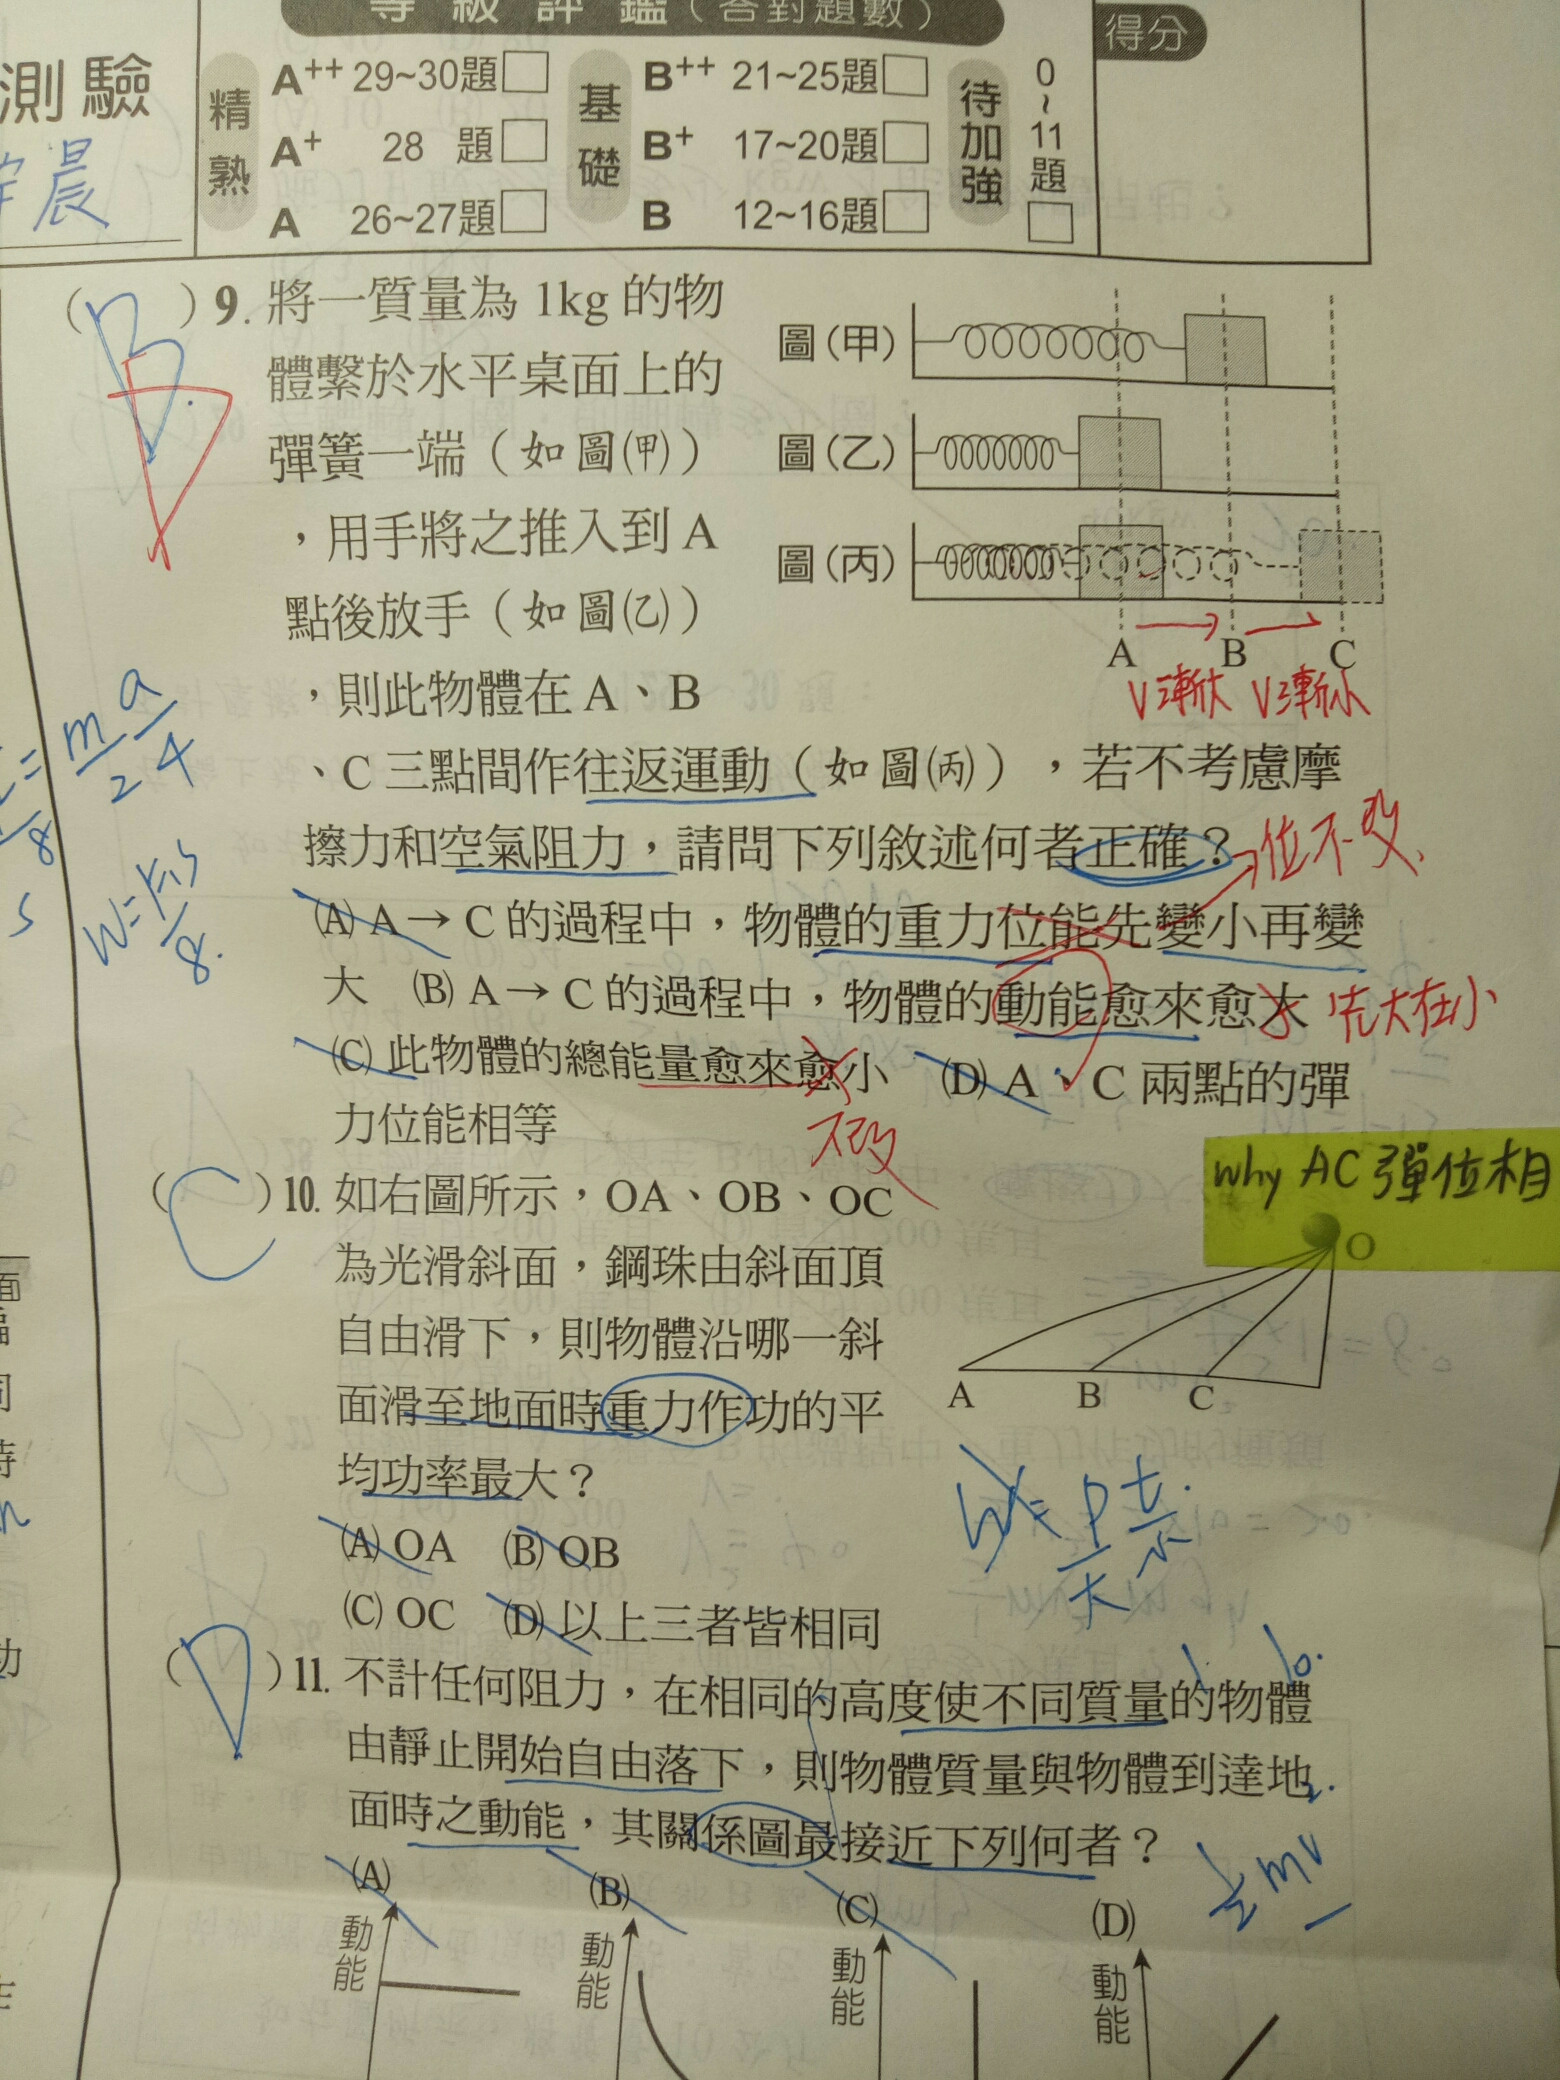 等級評鑑（答對題數）
得分
測驗
晨
精熟
A++ 29~30題
A+ 28 題
A 26~27題
基礎
B++ 21~25題
B+ 17~20題
B 12~16題
待加強
0~11題
(B) 9. 將一質量為 1kg 的物
D
體繫於水平桌面上的
彈簧一端（如圖(甲)）
，用手將之推入到 A
點後放手（如圖(乙)）
，則此物體在 A、B
、C 三點間作往返運動（如圖(丙)），若不考慮摩
擦力和空氣阻力，請問下列敘述何者正確？
圖(甲)
圖(乙)
圖(丙)
A B C
V漸大 V漸小
位不改
(A) A→C 的過程中，物體的重力位能先變小再變
大 (B) A→C 的過程中，物體的動能愈來愈大
先大在小
(C) 此物體的總能量愈來愈小 (D) A、C 兩點的彈
力位能相等
不改
why AC 彈位相
(C) 10. 如右圖所示，OA、OB、OC
為光滑斜面，鋼珠由斜面頂
自由滑下，則物體沿哪一斜
面滑至地面時重力作功的平
均功率最大？
O
A B C
(A) OA (B) OB
(C) OC (D) 以上三者皆相同
W = P t
(D) 11. 不計任何阻力，在相同的高度使不同質量的物體
由靜止開始自由落下，則物體質量與物體到達地
面時之動能，其關係圖最接近下列何者？
½mv
(A) (B) (C) (D)
動能 動能 動能 動能